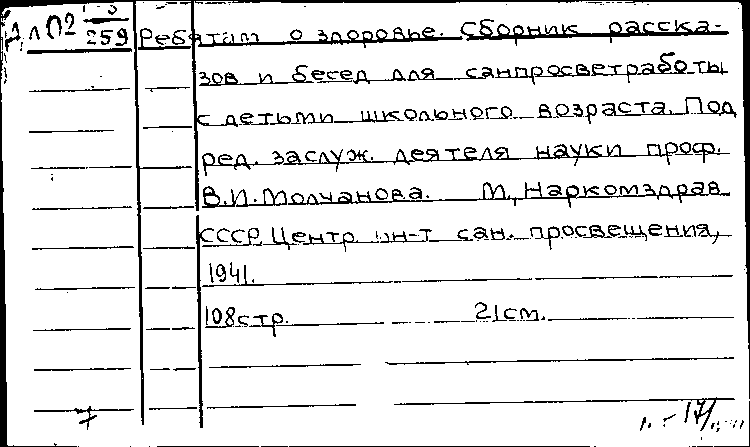 259 Ребятам о здоровье. Сборник расска-
зов и бесед для санпросветработы
с детьми школьного возраста. Под
ред. заслуж. деятеля науки проф.
В.И.Молчанова. М., Наркомздрав
СССР, Центр. ин-т сан. просвещения,
1941.
108стр. 21см.